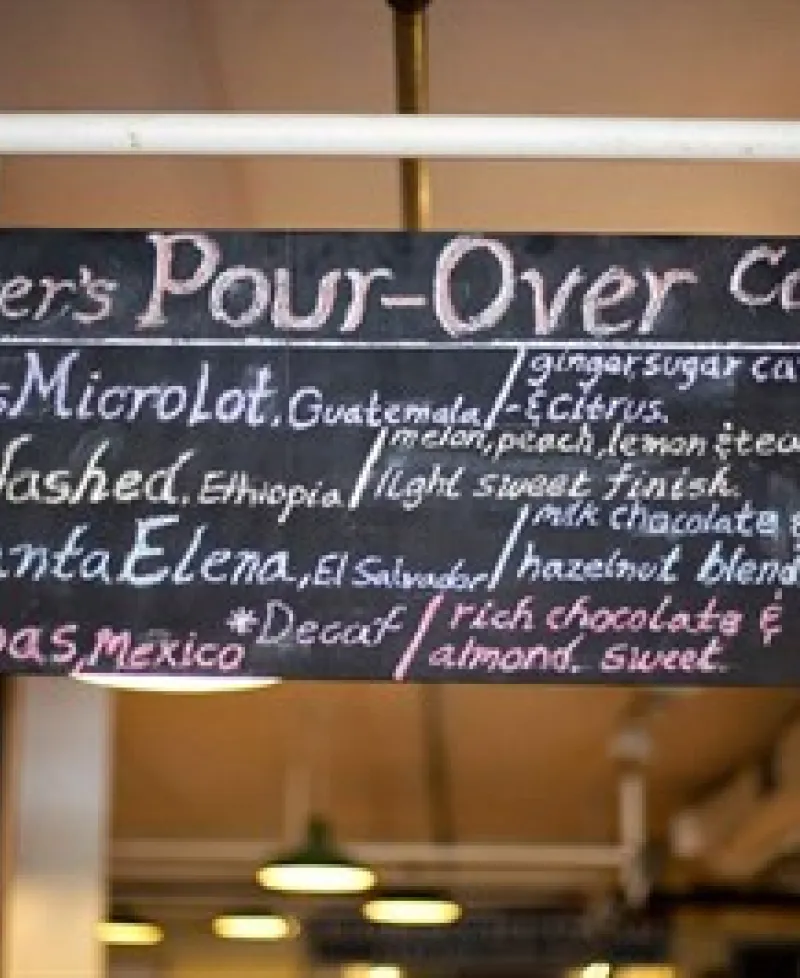 er's Pour-Over Co
s Microlot, Guatemala / ginger, sugar ca
- & citrus.
ashed, Ethiopia / melon, peach, lemon & tea
light sweet finish.
anta Elena, El Salvador / milk chocolate &
hazelnut blend
pas, Mexico *Decaf / rich chocolate &
almond. sweet.